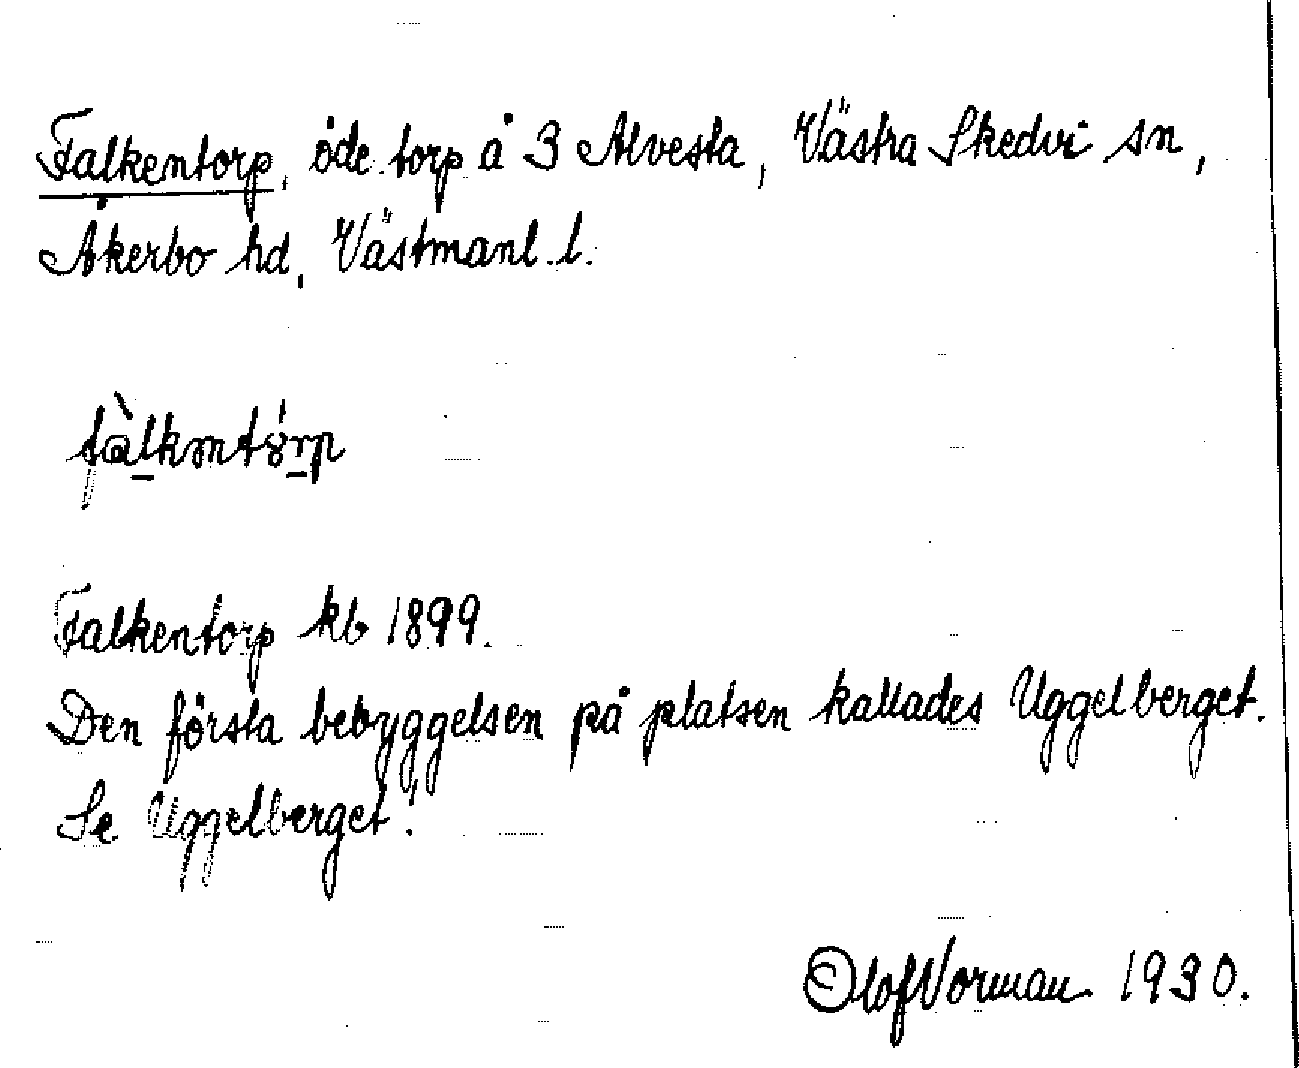 Falkentorp, öde torp å 3 Alvesta, Västra Skedvi sn,
Åkerbo hd, Västmanl. l.
Falkentorp kb 1899.
Den första bebyggelsen på platsen kallades Uggelberget.
Se Uggelberget!
Olof Norman 1930.